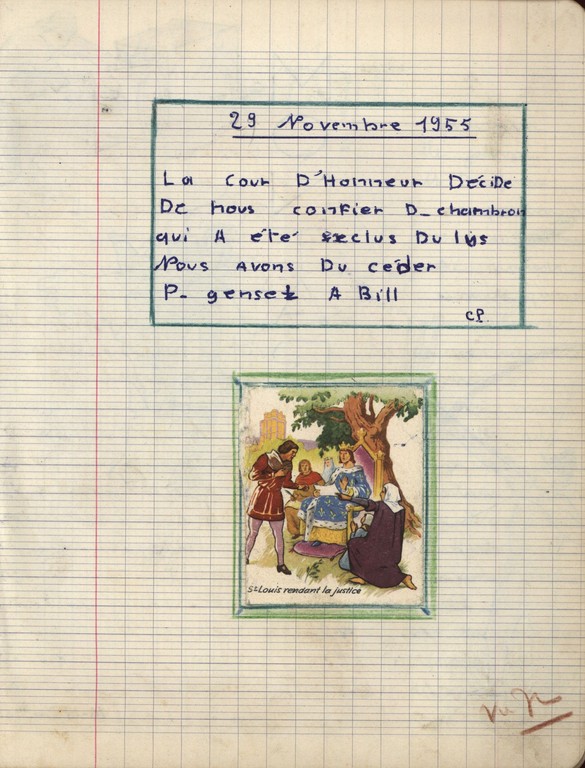 29 Novembre 1955
La Cour D'Honneur Décide
De nous confier D_ chambron
qui A été exclus Du lys
Nous avons Du céder
P- genset A Bill
CP.
St Louis rendant la justice
Vu